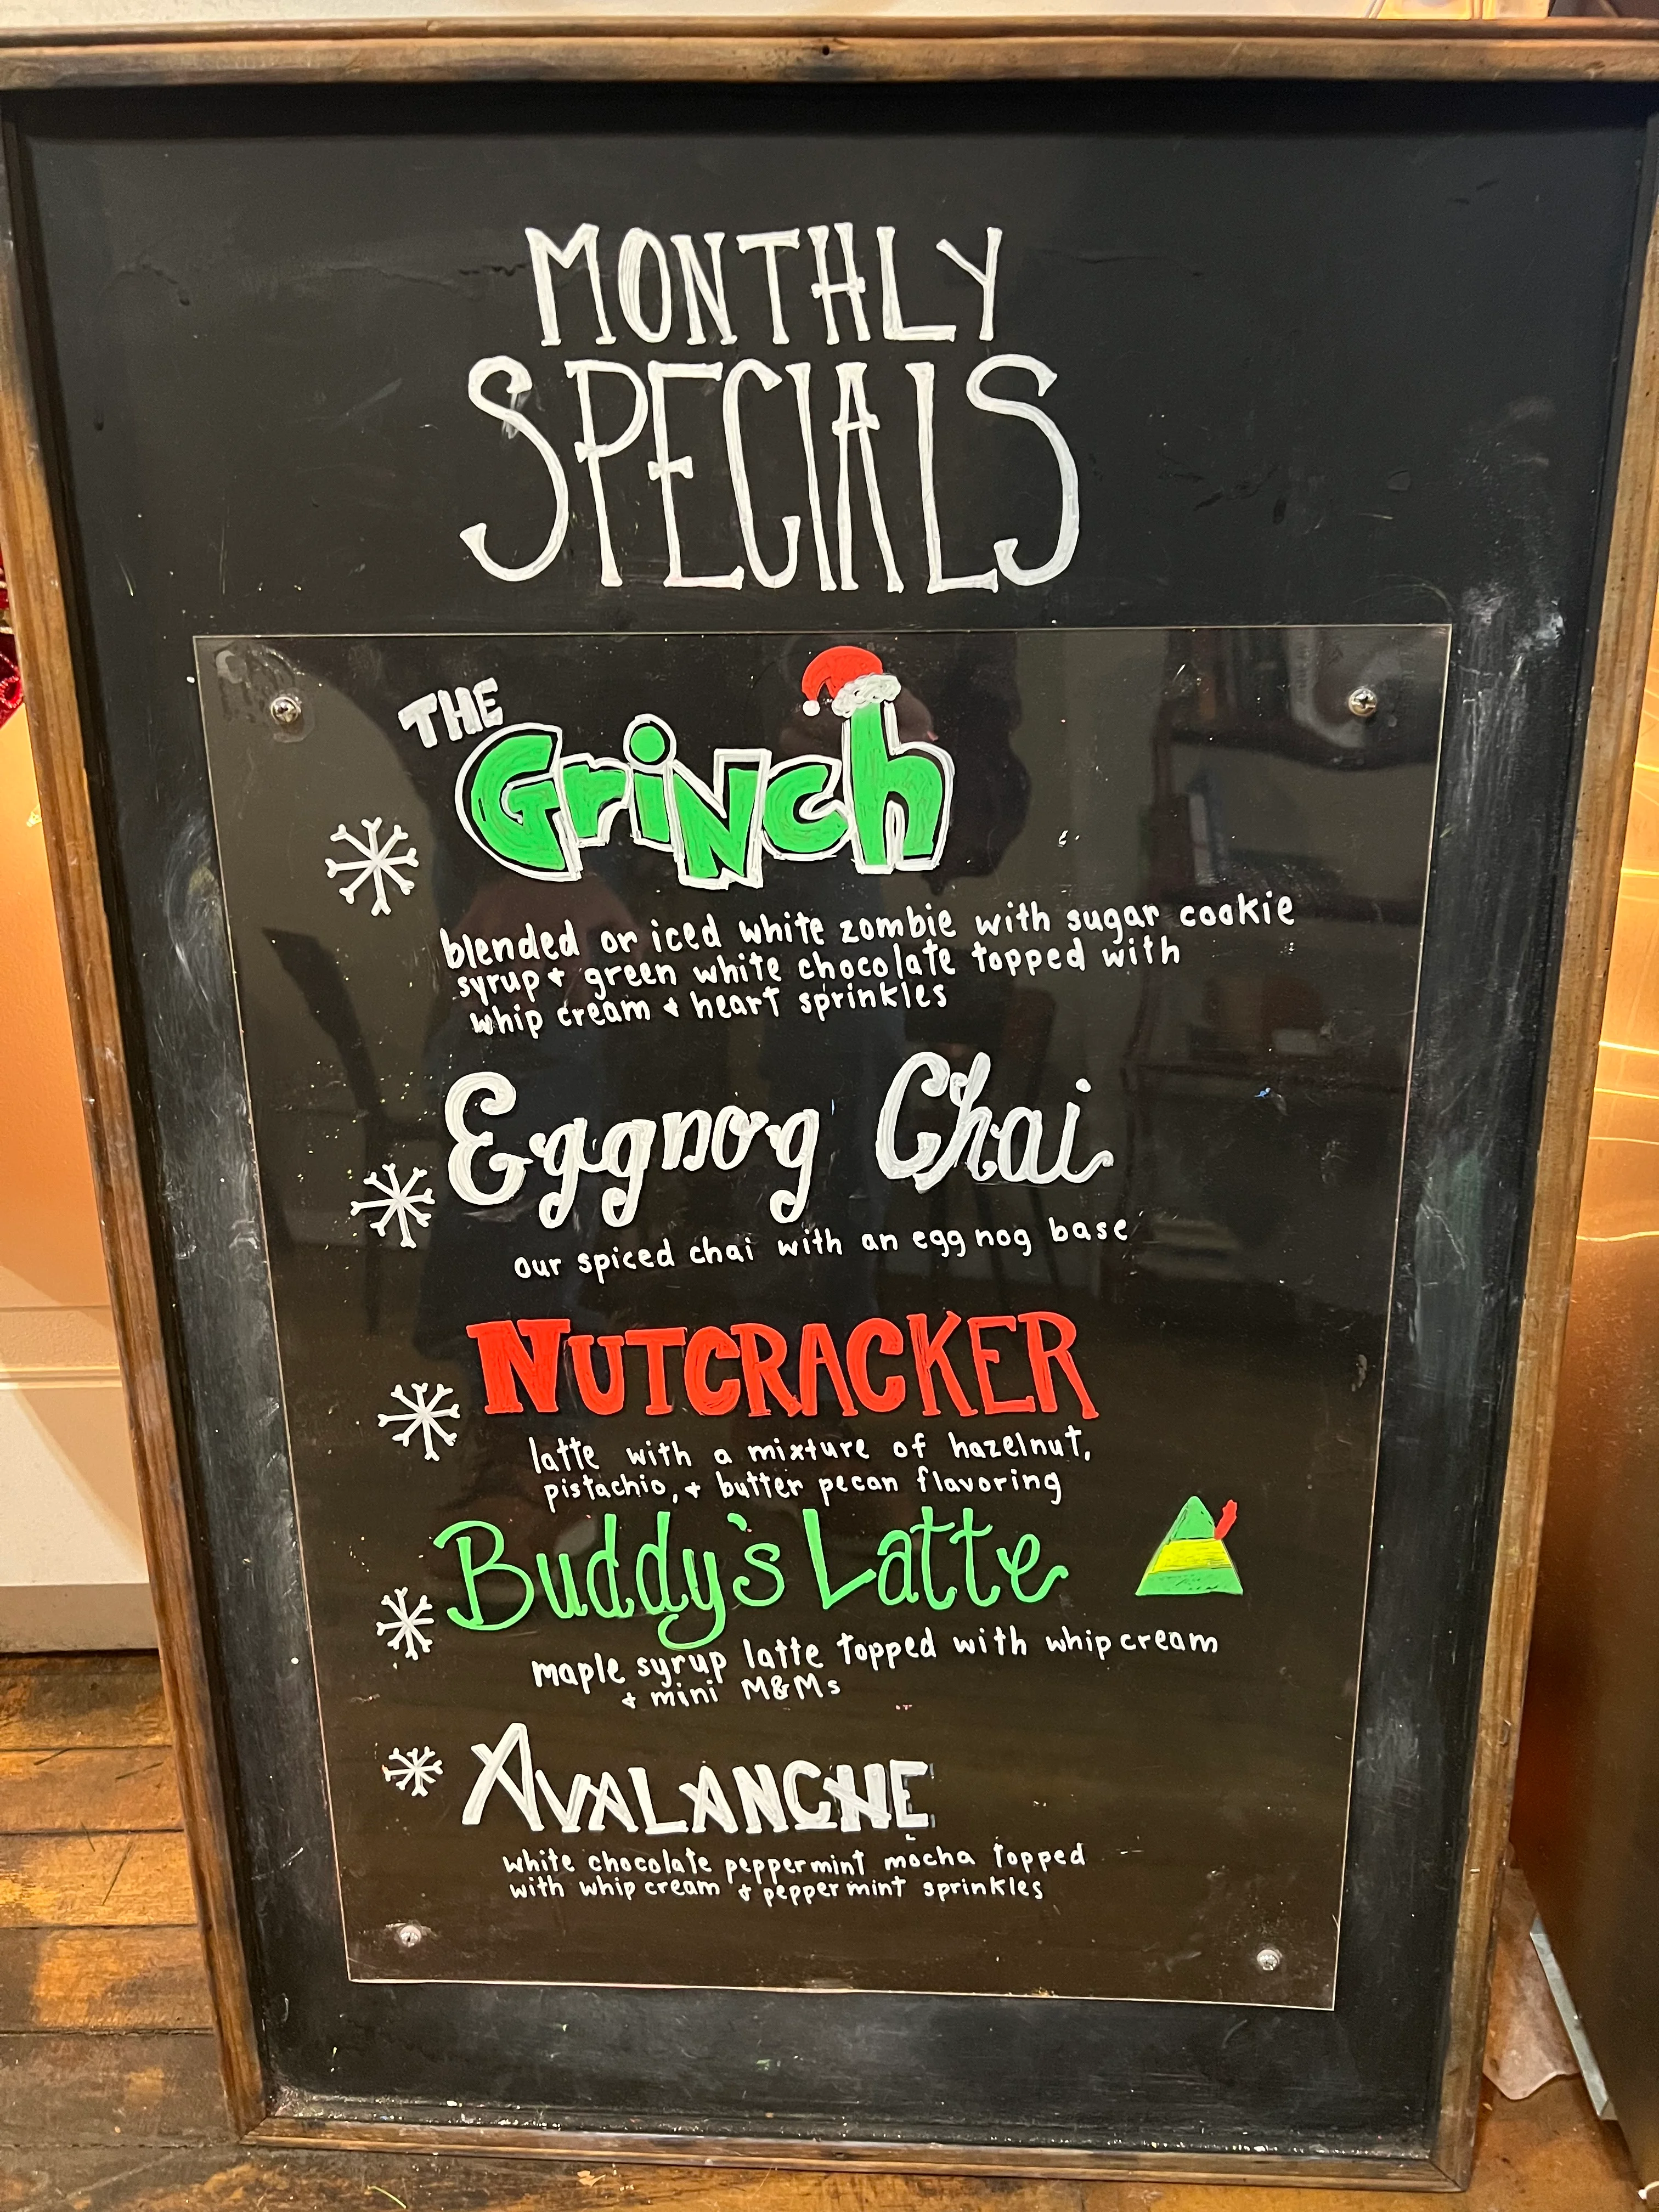 MONTHLY
SPECIALS
THE
GriNch
blended or iced white zombie with sugar cookie
syrup + green white chocolate topped with
whip cream + heart sprinkles
Eggnog Chai
our spiced chai with an egg nog base
NUTCRACKER
latte with a mixture of hazelnut,
pistachio, + butter pecan flavoring
Buddy's Latte
maple syrup latte topped with whip cream
+ mini M&Ms
AVALANCHE
white chocolate peppermint mocha topped
with whip cream + peppermint sprinkles